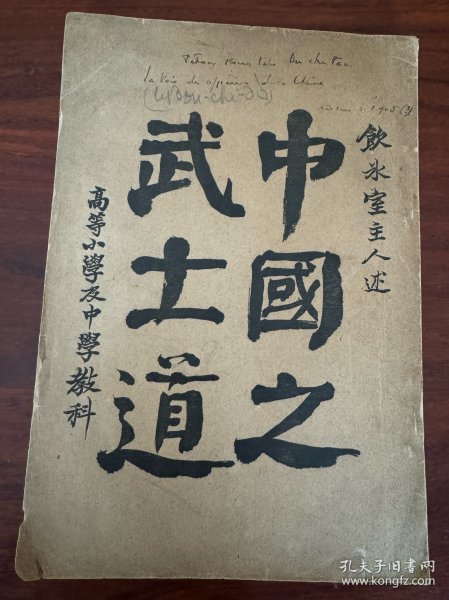 飲冰室主人述
中國之
武士道
高等小學及中學教科
Tchong Kouo tche Ou che tao
la Voie de officiers de la Chine
(le Bou-chi-Do)
1905
孔夫子旧书网
www.kongfz.com